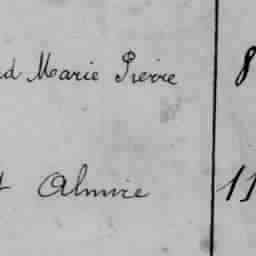 d Marie Pierre 8
t Almire 11